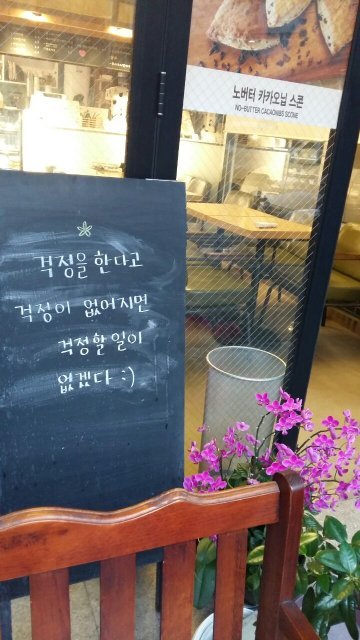 노버터 카카오닙 스콘
NO-BUTTER CACAONIBS SCONE
걱정을 한다고
걱정이 없어지면
걱정할 일이
없겠다 :)